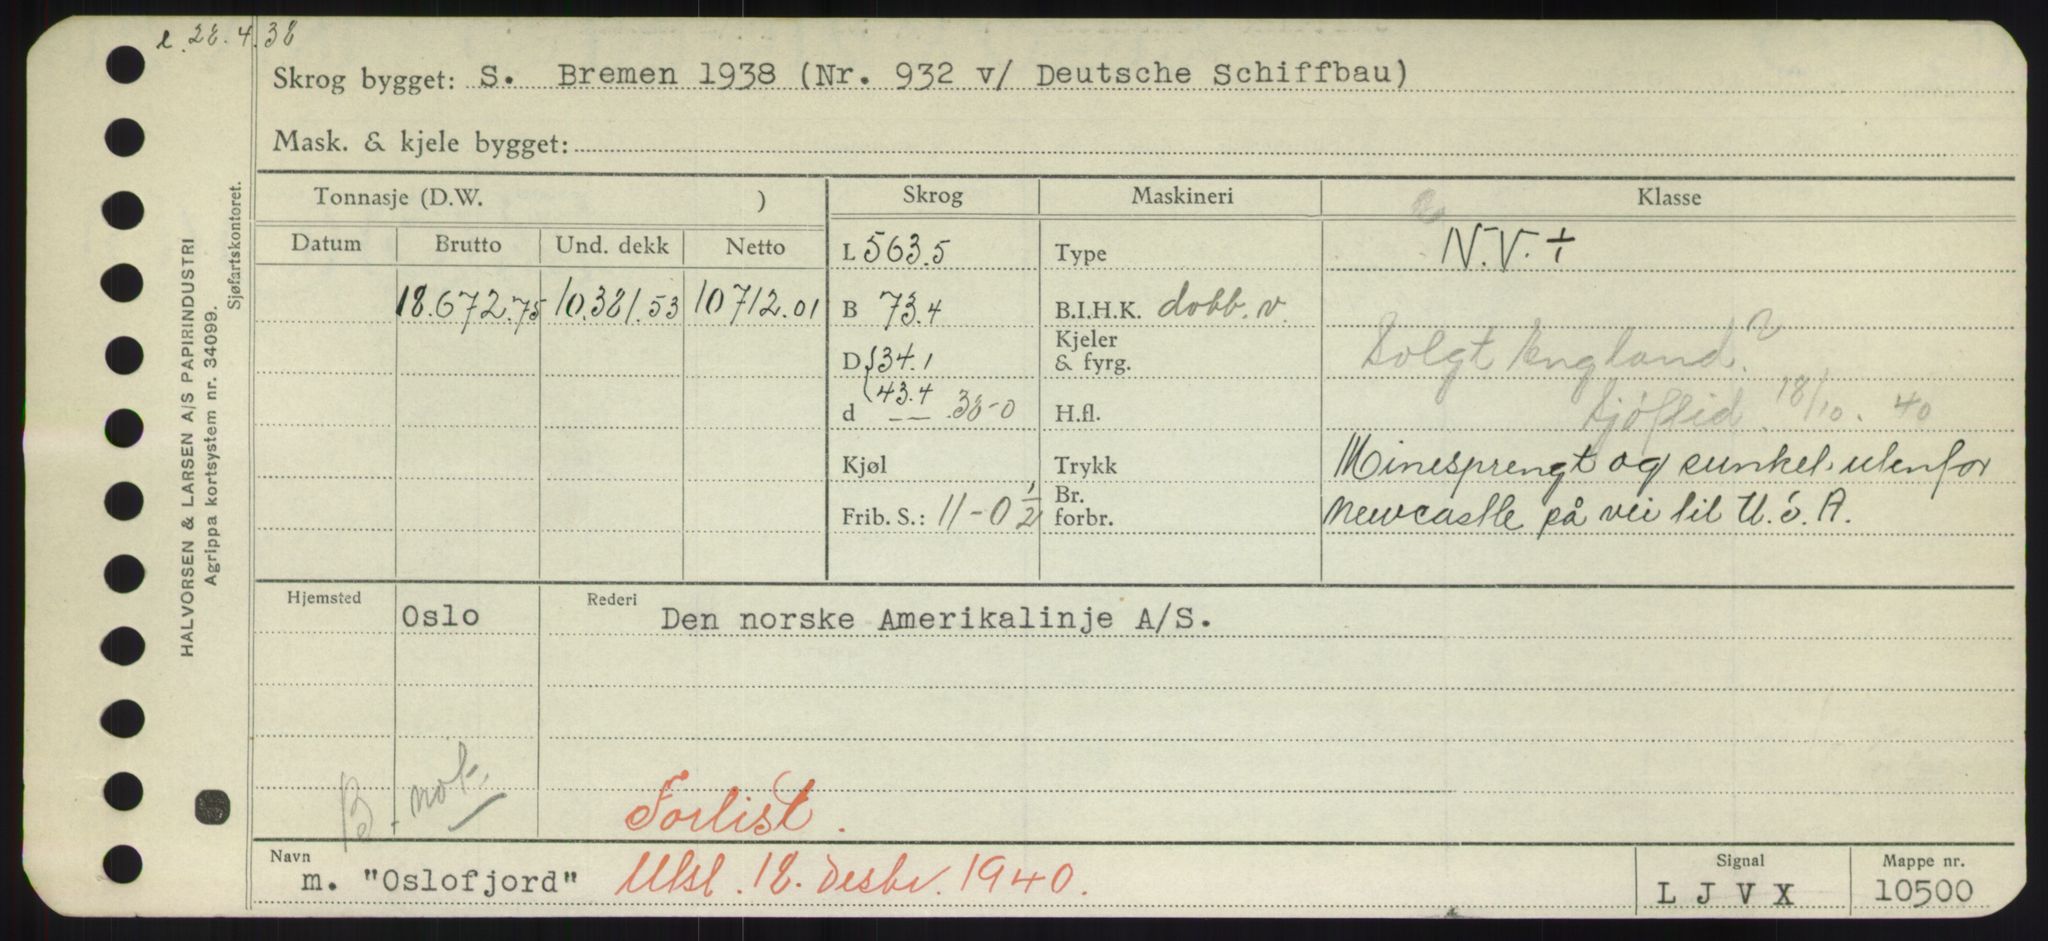 e. 28.4.38
Skrog bygget: S. Bremen 1938 (Nr. 932 v/ Deutsche Schiffbau)
Mask. & kjele bygget:
Tonnasje (D.W. ) Skrog Maskineri Klasse
Datum Brutto Und. dekk Netto L 563.5 Type N.V. +
18.672.75 10.381.53 10712.01 B 73.4 B.I.H.K. dobb. v.
Solgt England?
D { 34.1 Kjeler & fyrg.
43.4
d -- 38-0 H.fl. Sjøftid. 18/10. 40
Kjøl Trykk Minesprengt og sunket utenfor
Frib. S.: 11-0 1/2 Br. forbr. Newcastle på vei til U.S.A.
Hjemsted Oslo Rederi Den norske Amerikalinje A/S.
B. not.
Forlist.
Navn m. "Oslofjord" Utsl. 18. desbr. 1940.
Signal L J V X
Mappe nr. 10500
HALVORSEN & LARSEN A/S PAPIRINDUSTRI
Agrippa kortsystem nr. 34099.
Sjøfartskontoret.